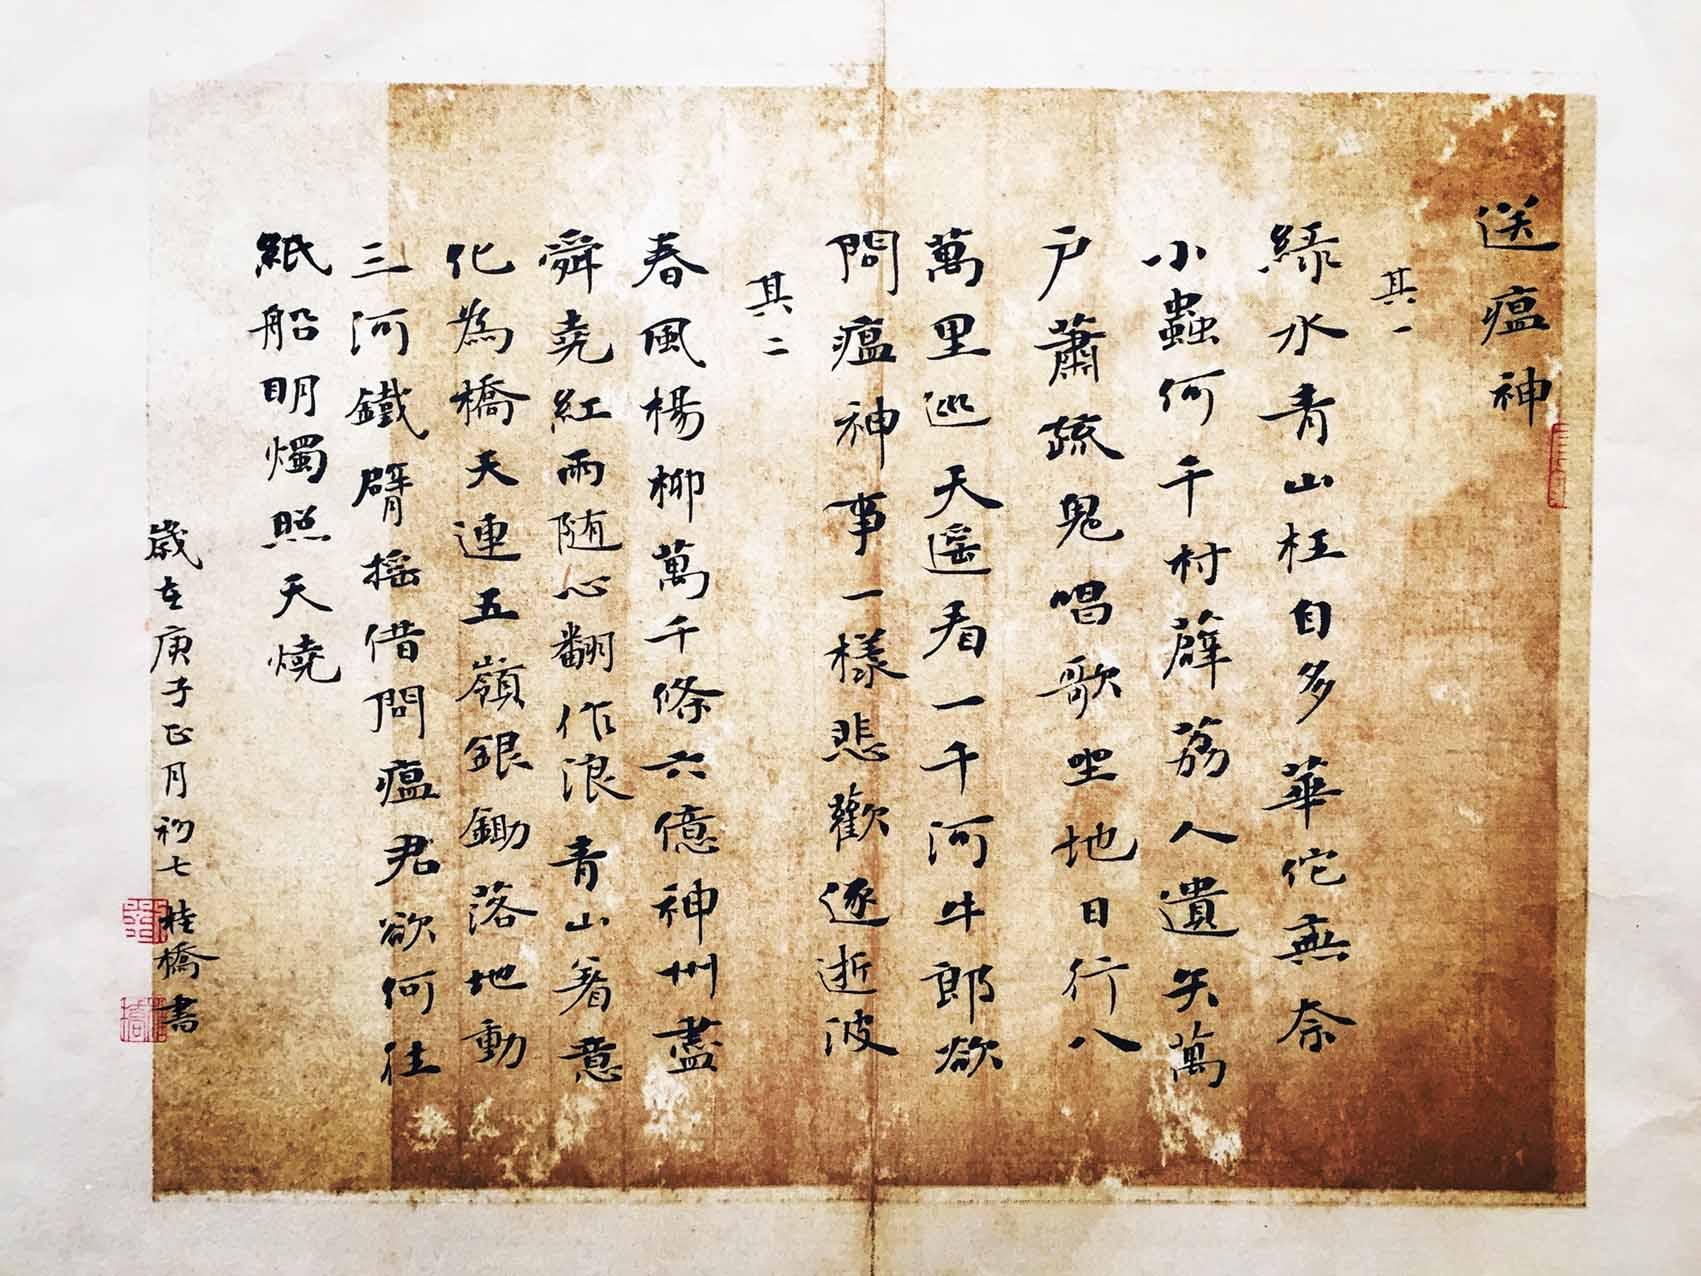 送瘟神
其一
綠水青山枉自多華佗無奈
小蟲何千村薜荔人遺矢萬
戶蕭疏鬼唱歌坐地日行八
萬里巡天遥看一千河牛郎欲
問瘟神事一樣悲歡逐逝波
其二
春風楊柳萬千條六億神州盡
舜堯紅雨随心翻作浪青山着意
化為橋天連五嶺銀鋤落地動
三河鐵臂摇借問瘟君欲何往
紙船明燭照天燒
歲在庚子正月初七桂橋書